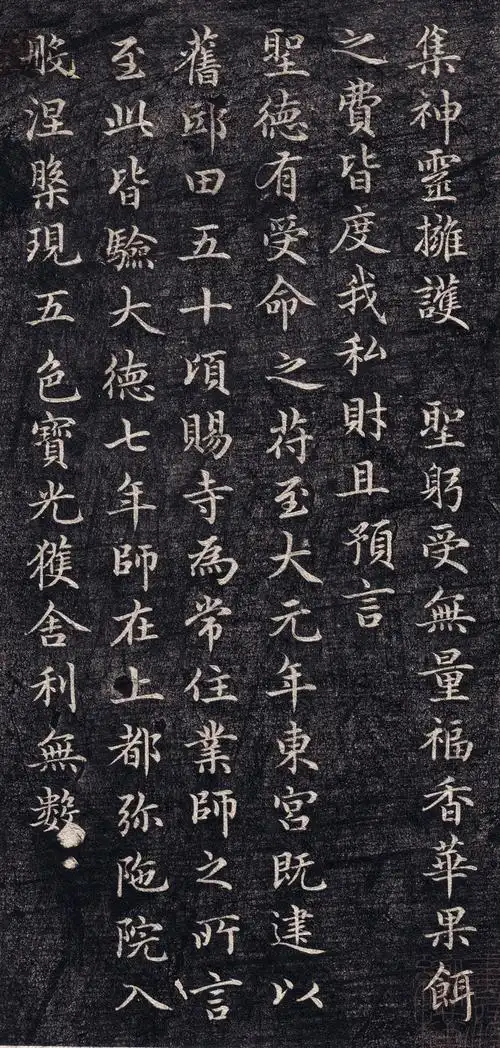 集神靈擁護　聖躬受無量福香華果餌
之費皆度我私財且預言
聖德有受命之苻至大元年東宮既建以
舊邸田五十頃賜寺為常住業師之所言
至此皆驗大德七年師在上都弥陁院入
般涅槃現五色寶光獲舍利無數